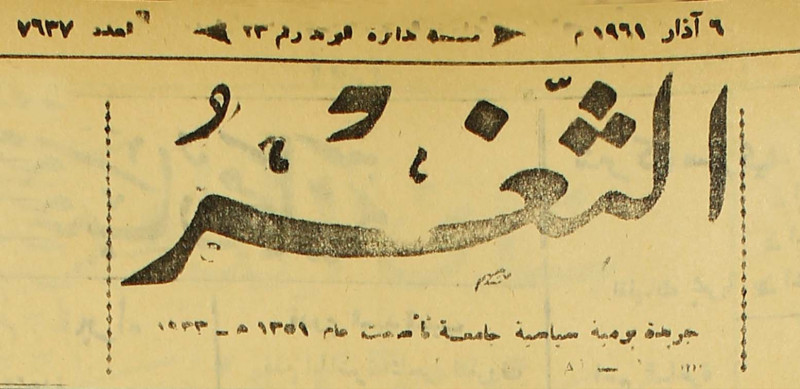 ٦ آذار ١٩٦١ م دائرة البريد رقم ٢٣ العدد ٧٦٣٧
الثّغر
جريدة يومية سياسية جامعة تأسست عام ١٣٥١ هـ - ١٩٣٣